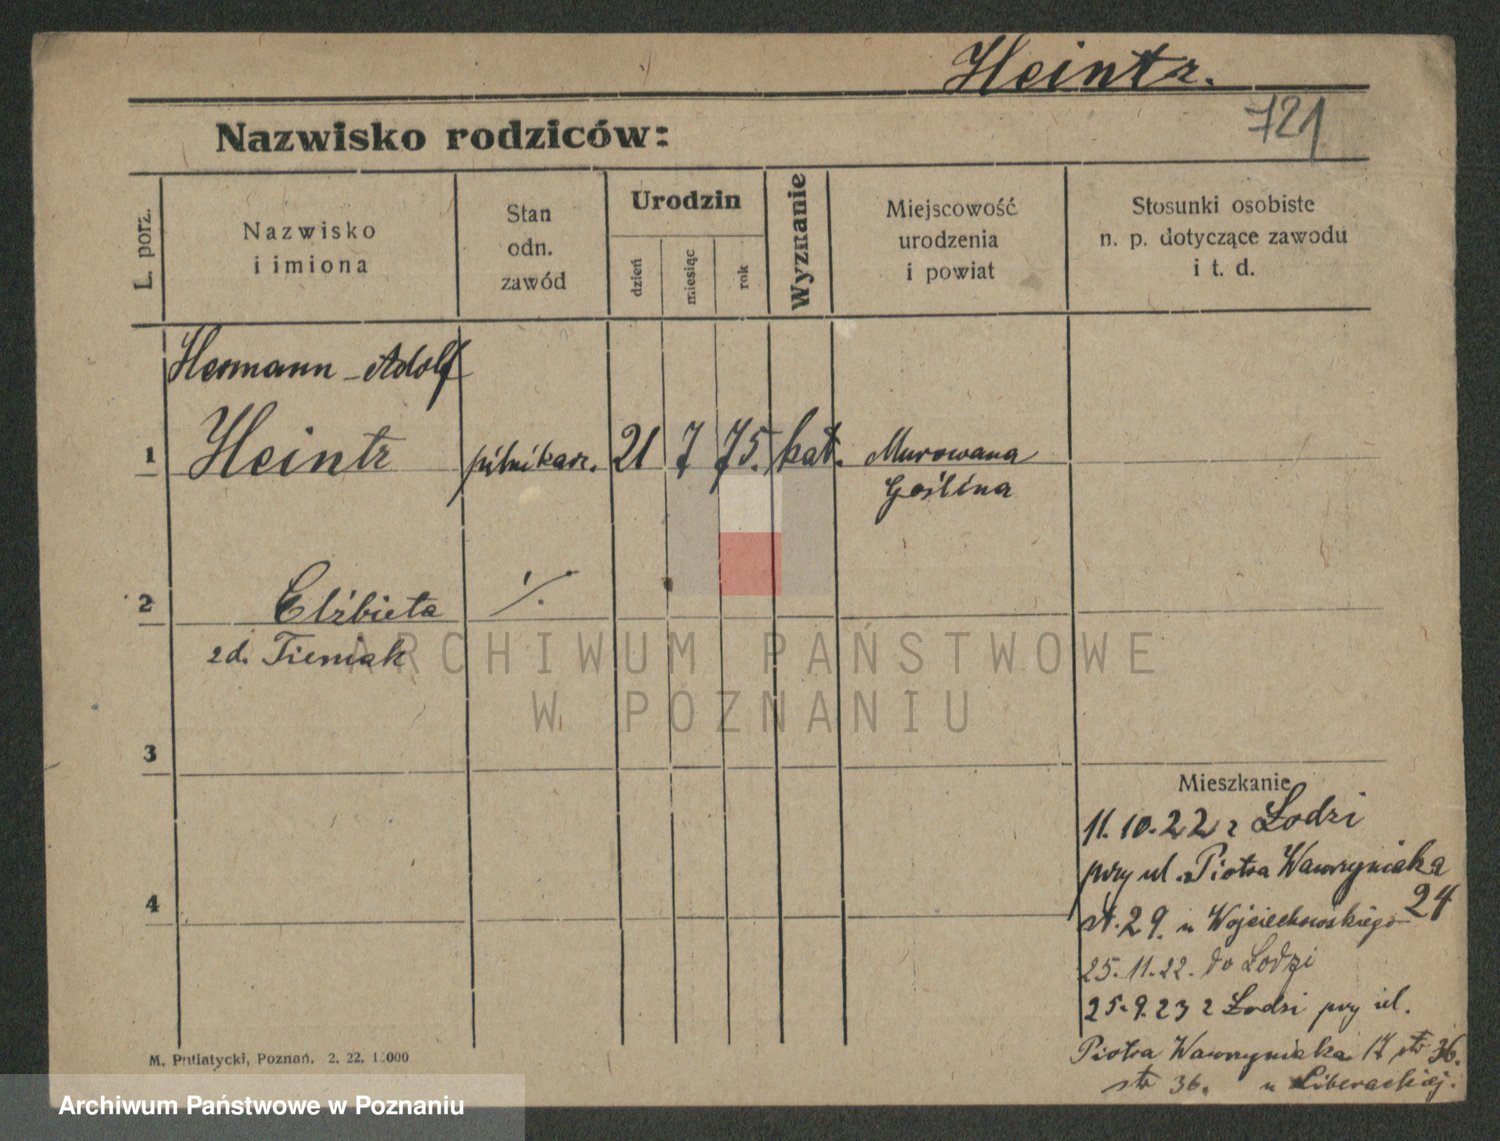 Heintz.
721
Nazwisko rodziców:
L. porz.
Nazwisko
i imiona
Stan
odn.
zawód
Urodzin
dzień
miesiąc
rok
Wyznanie
Miejscowość
urodzenia
i powiat
Stosunki osobiste
n. p. dotyczące zawodu
i t. d.
Hermann-Adolf
1 Heintz pilnikarz. 21 7 75. kat. Murowana
Goślina
2 Elżbieta ·/.
zd. Tieniak
ARCHIWUM PAŃSTWOWE
W POZNANIU
3
Mieszkanie
11.10.22 z Łodzi
przy ul. Piotra Wawrzyniaka
24
4
st. 29. u Wojciechowskiego
25.11.22. do Łodzi
25.9.23 z Łodzi przy ul.
Piotra Wawrzyniaka 17 str 36.
str 36. u Liberackiej.
M. Putiatycki, Poznań. 2. 22. 10000
Archiwum Państwowe w Poznaniu